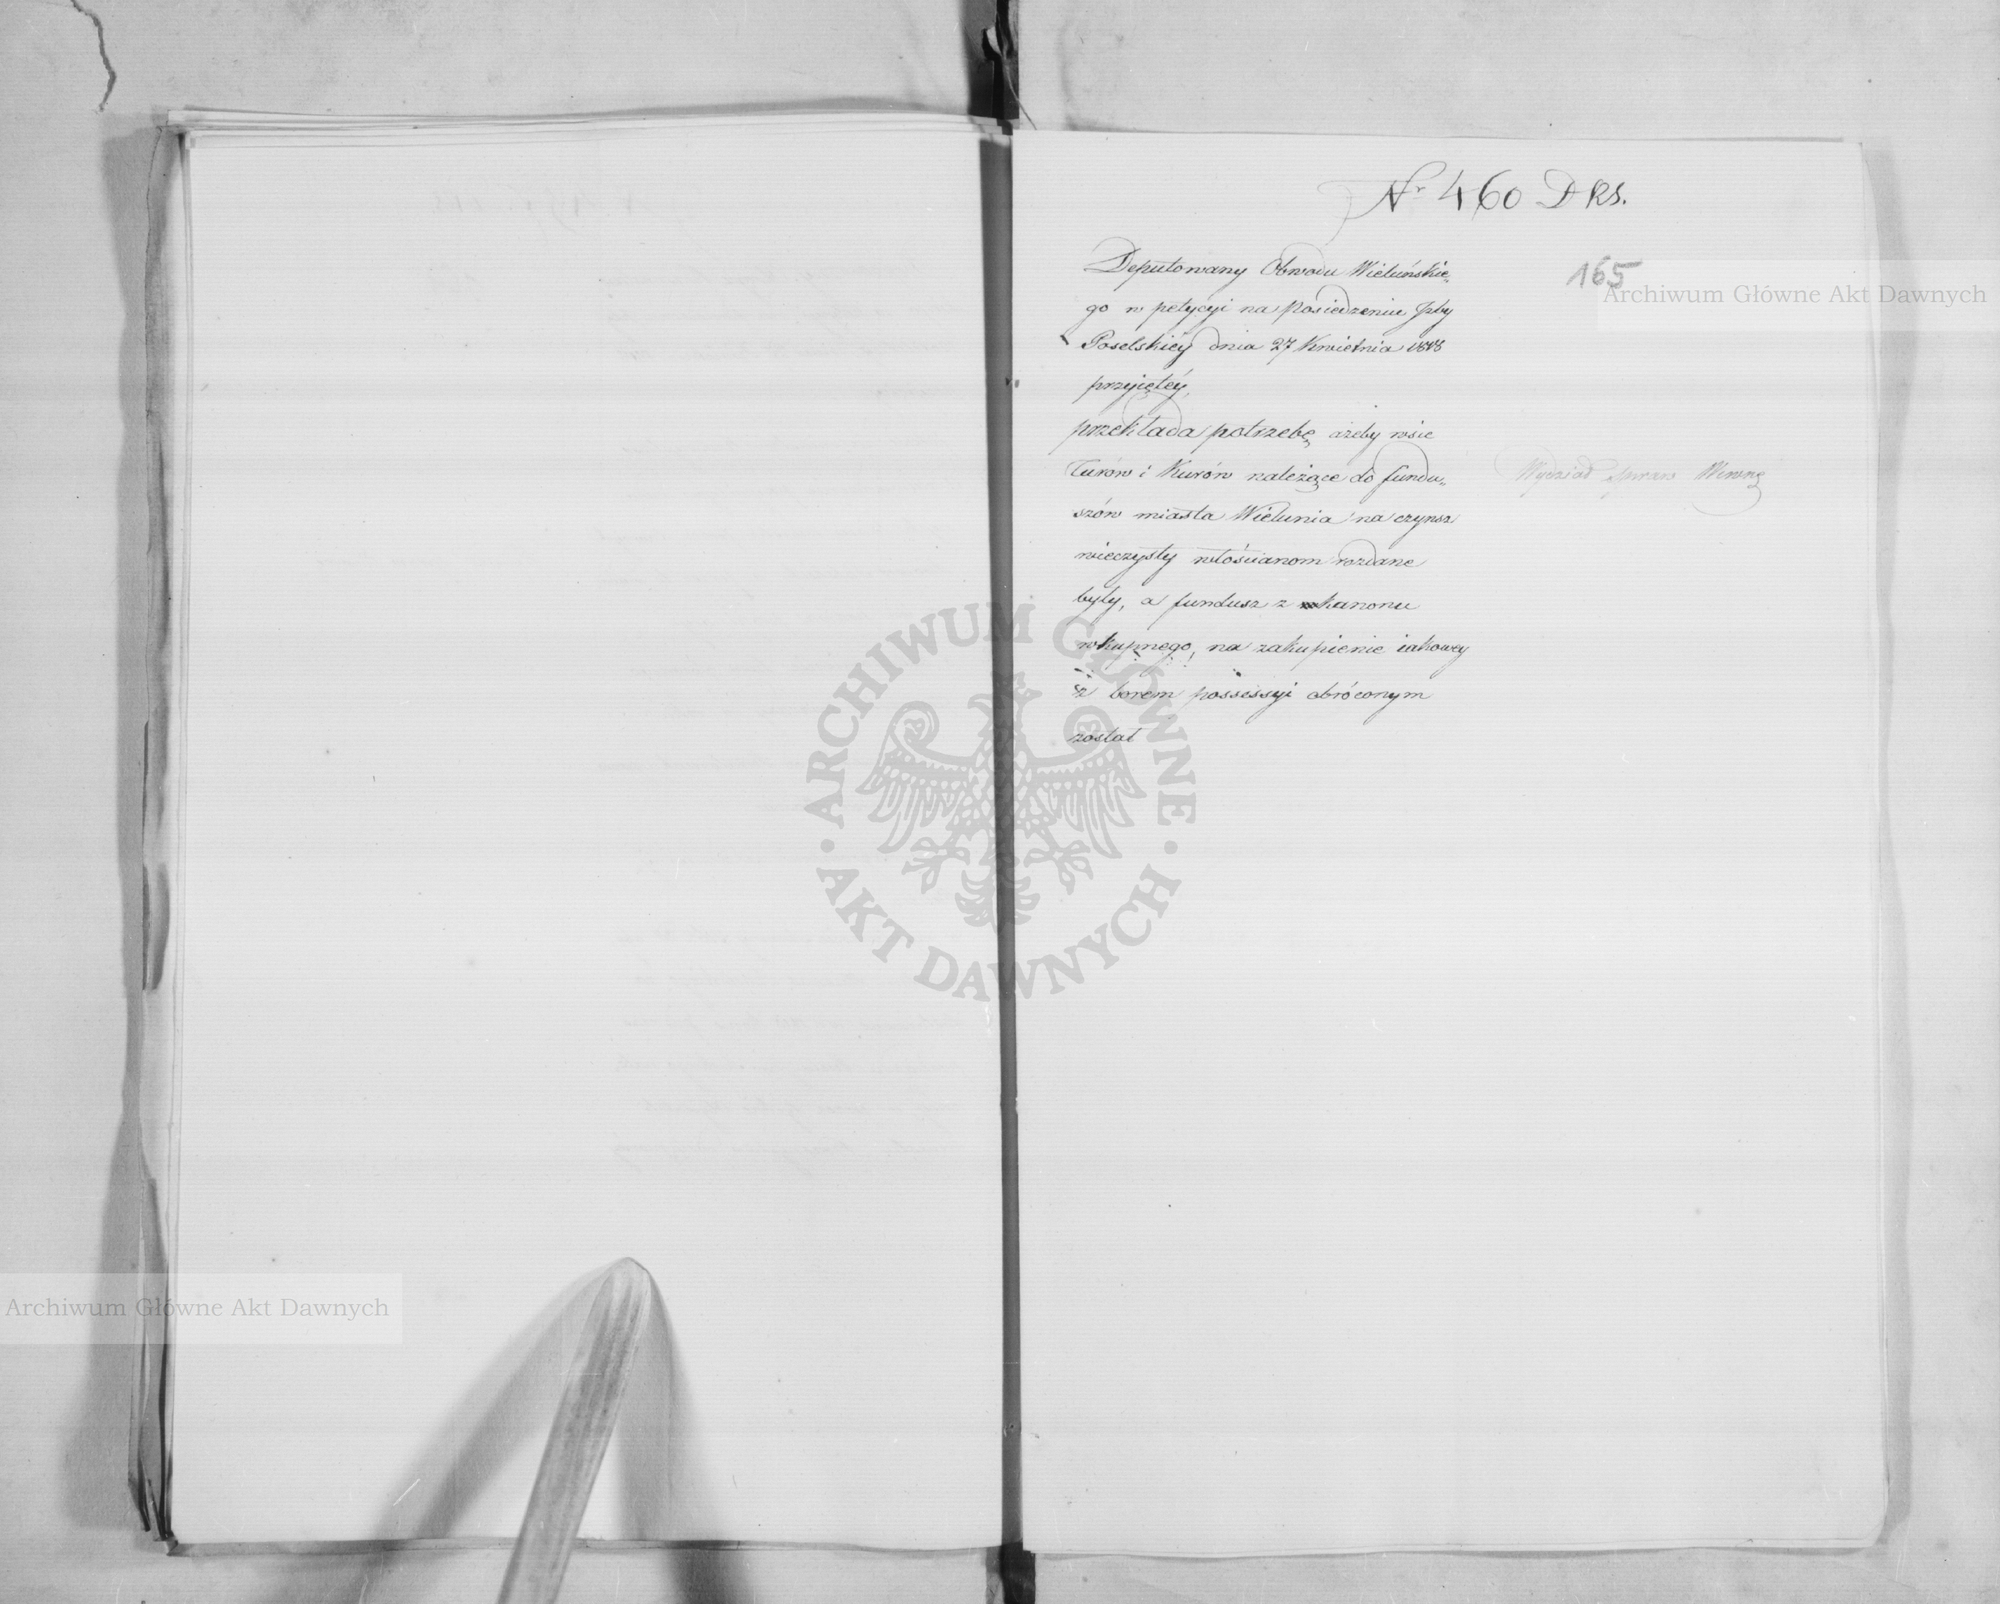 Nr 460 D KS.
165
Archiwum Główne Akt Dawnych
Deputowany Obwodu Wieluńskie„
go w petycyi na Posiedzeniu Jzby
Poselskiey dnia 27 Kwietnia 1818
przyiętéy,
przekłada potrzebę ażeby wsie
Turów i Kurów należące do fundu„
szów miasta Wielunia na czynsz
wieczysty włościanom rozdane
były, a fundusz z kanonu
wkupnego, na zakupienie iakowey
z borem possessyi obróconym
został
Wydział spraw Wewnę
ARCHIWUM GŁÓWNE
AKT DAWNYCH
Archiwum Główne Akt Dawnych